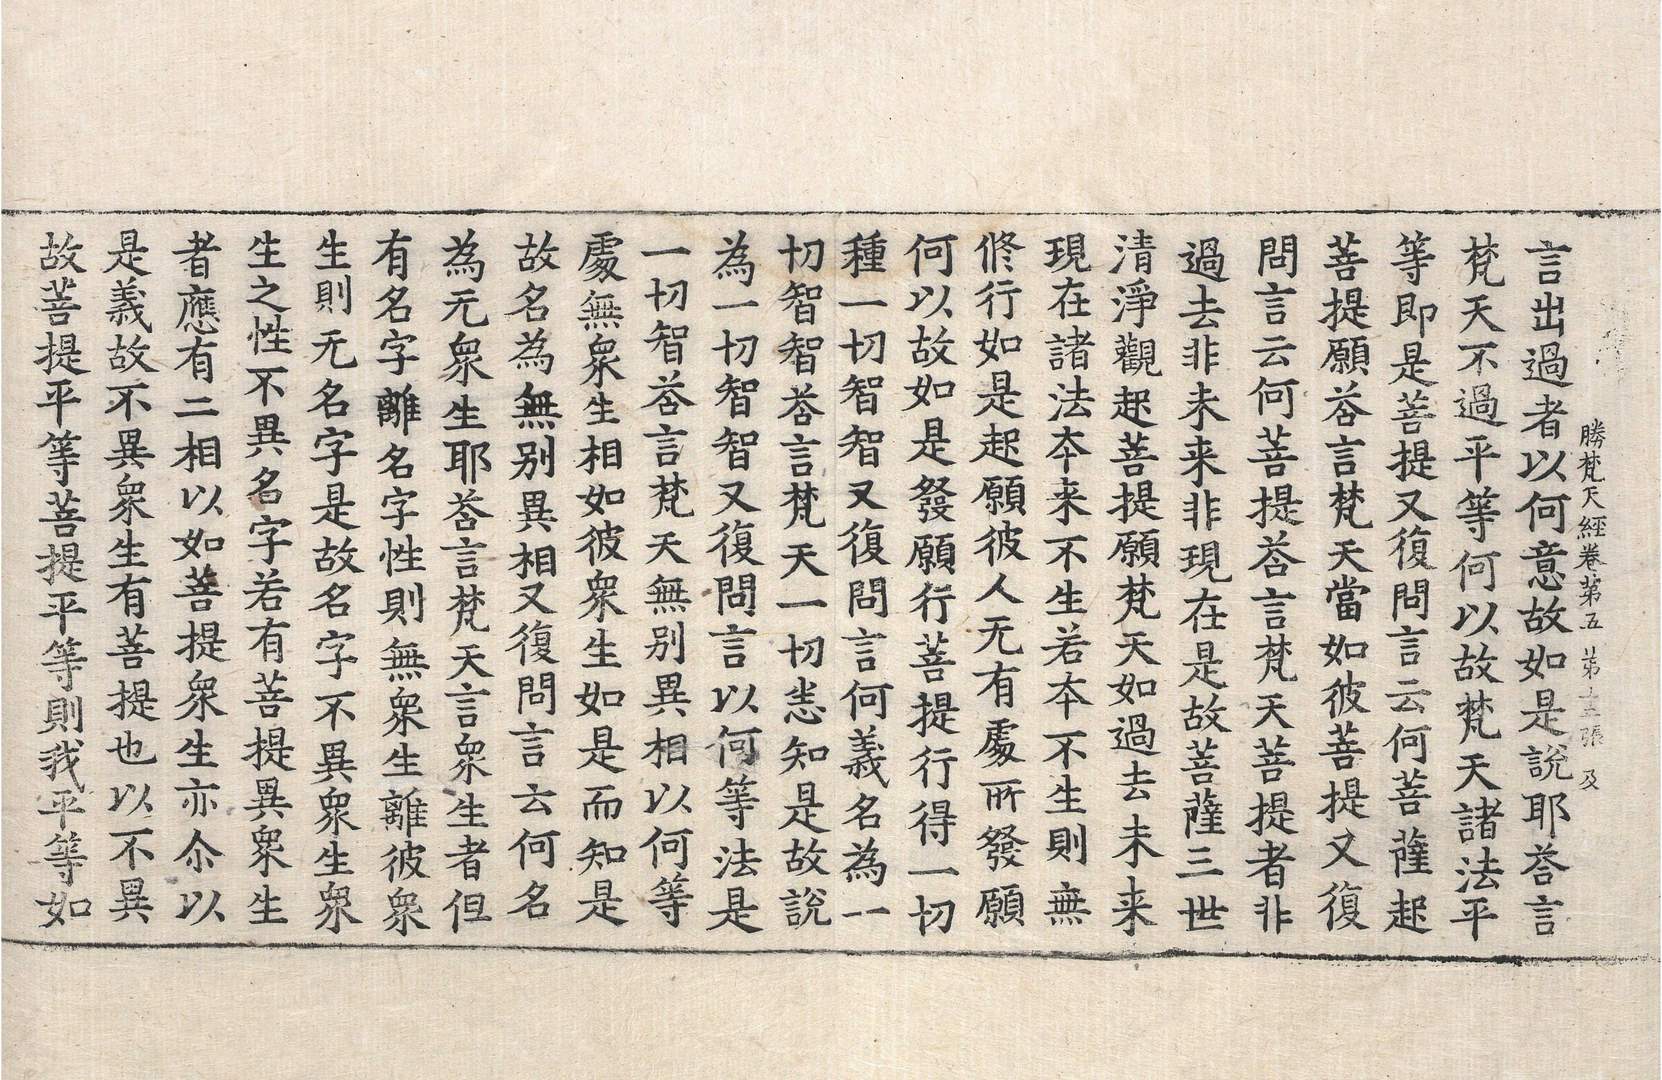 勝梵天經卷苐五 苐十三張 及
言出過者以何意故如是說耶荅言
梵天不過平等何以故梵天諸法平
等即是菩提又復問言云何菩薩起
菩提願荅言梵天當如彼菩提又復
問言云何菩提荅言梵天菩提者非
過去非未来非現在是故菩薩三世
清淨觀起菩提願梵天如過去未来
現在諸法本来不生若本不生則無
修行如是起願彼人无有處所發願
何以故如是發願行菩提行得一切
種一切智智又復問言何義名為一
切智智荅言梵天一切悉知是故說
為一切智智又復問言以何等法是
一切智荅言梵天無别異相以何等
處無衆生相如彼衆生如是而知是
故名為無别異相又復問言云何名
為无衆生耶荅言梵天言衆生者但
有名字離名字性則無衆生離彼衆
生則无名字是故名字不異衆生衆
生之性不異名字若有菩提異衆生
者應有二相以如菩提衆生亦尒以
是義故不異衆生有菩提也以不異
故菩提平等菩提平等則我平等如